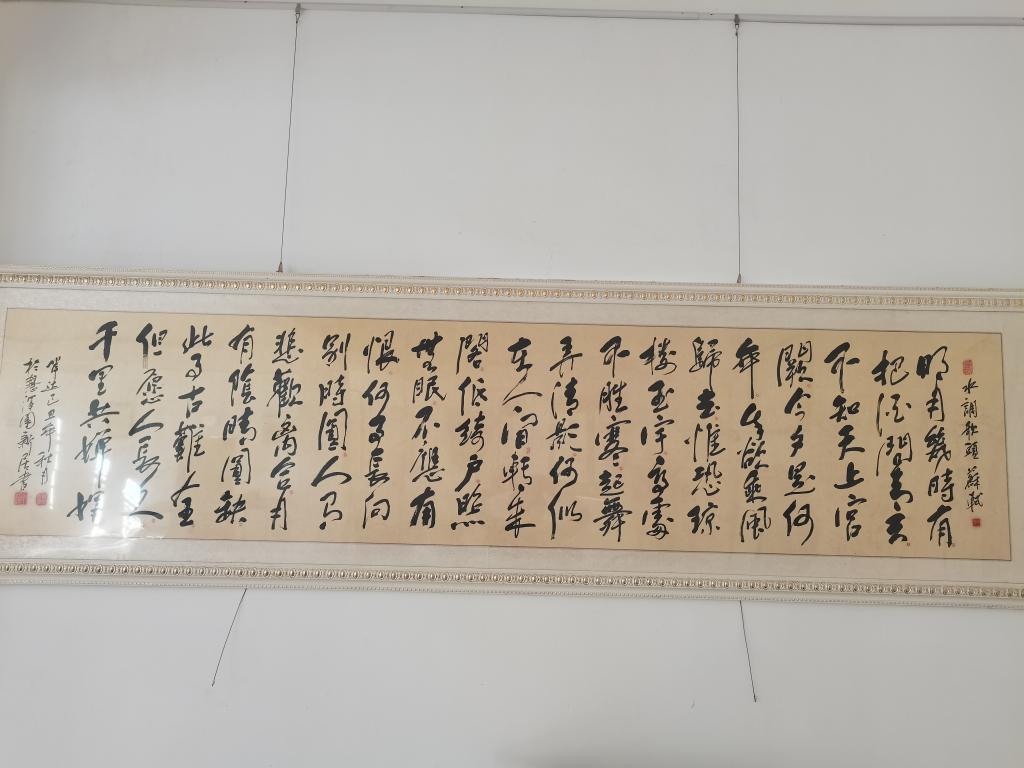 水調歌頭 蘇軾
明月幾時有
把酒問青天
不知天上宮
闕今夕是何
年我欲乘風
歸去惟恐瓊
樓玉宇高處
不勝寒起舞
弄清影何似
在人間轉朱
閣低綺戶照
無眠不應有
恨何事長向
別時圓人有
悲歡離合月
有陰晴圓缺
此事古難全
但願人長久
千里共嬋娟
己丑年秋月
於 書